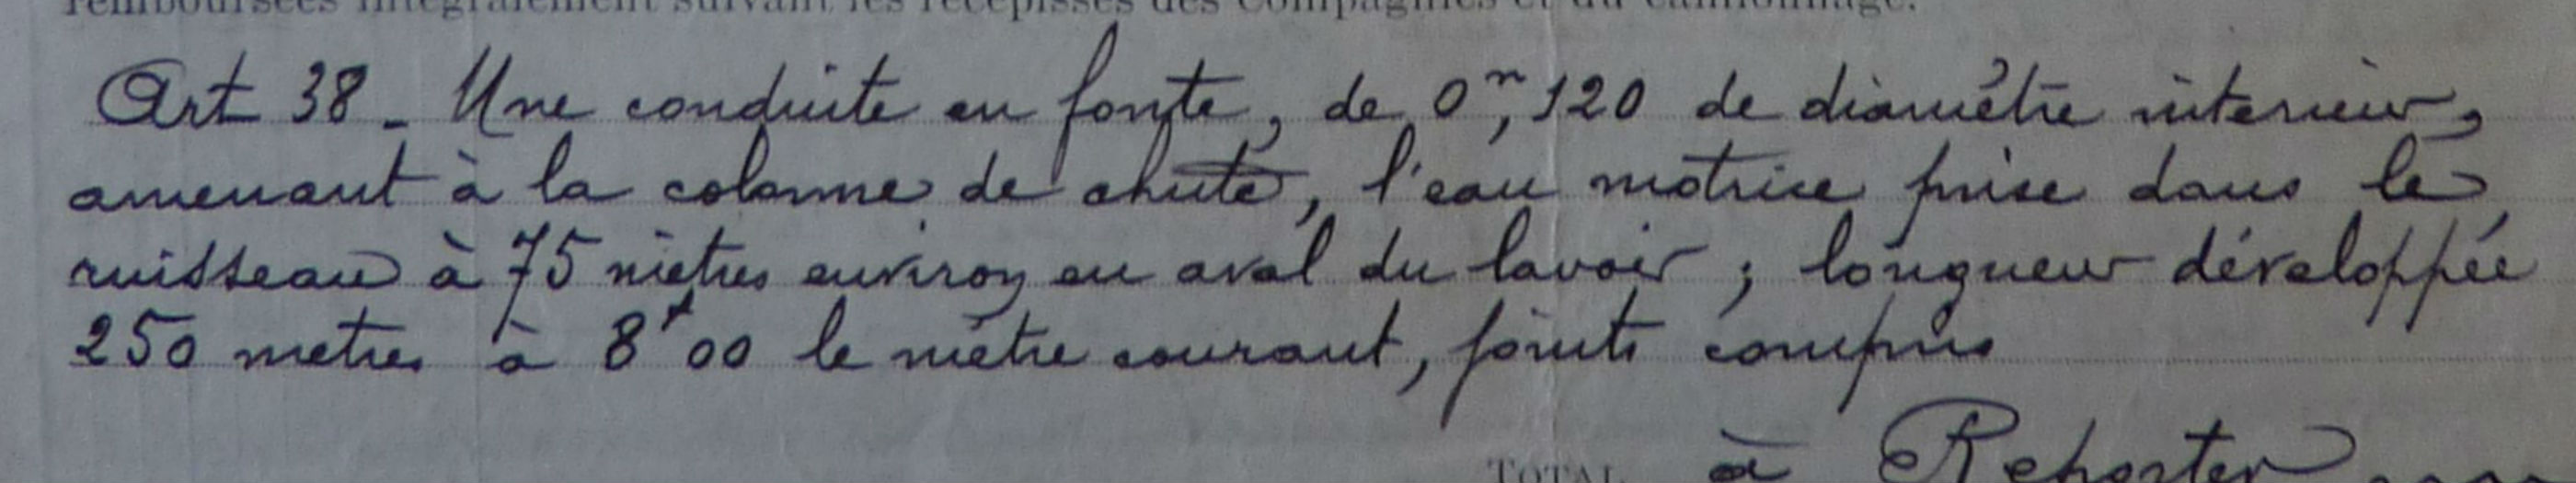 remboursées intégralement suivant les récépissés des Compagnies et du camionnage.
Art 38 - Une conduite en fonte, de 0m,120 de diamètre intérieur,
amenant à la colonne de chute, l'eau motrice prise dans le
ruisseau à 75 mètres environ en aval du lavoir ; longueur développée
250 metres à 8f00 le mètre courant, joints compris
TOTAL à Reporter